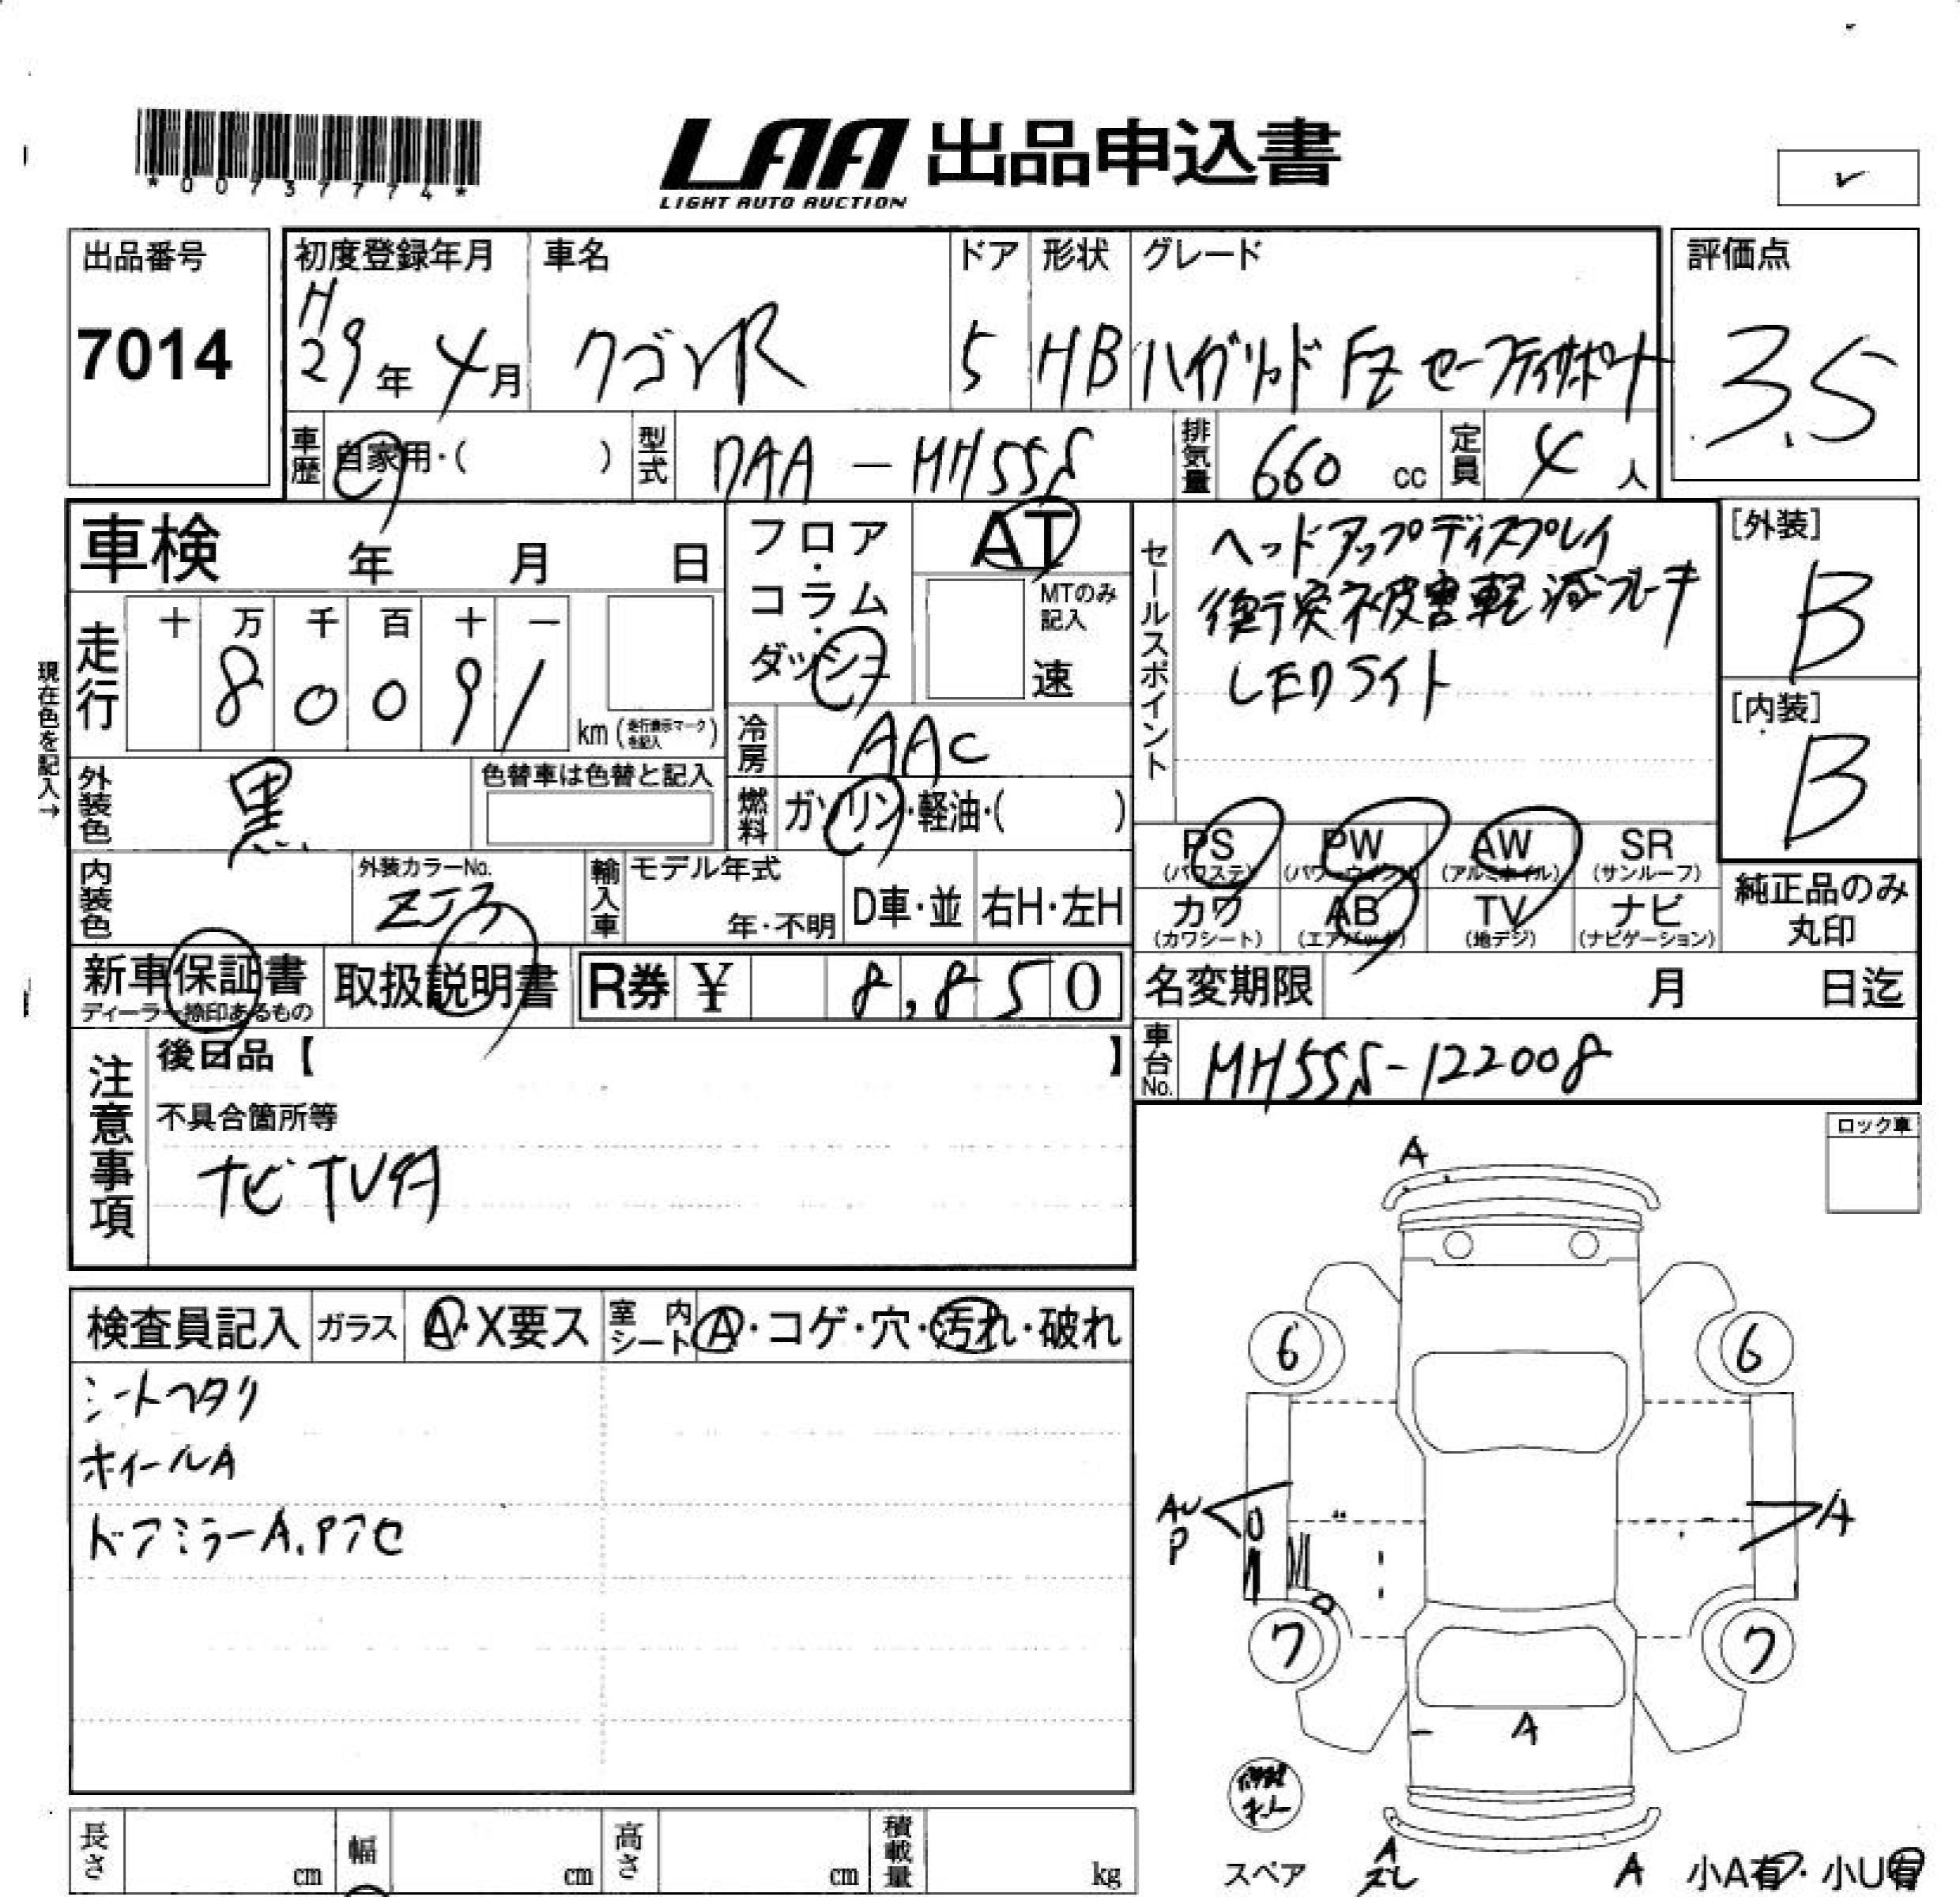 *00737774*
LAA 出品申込書
LIGHT AUTO AUCTION
出品番号
7014
初度登録年月 車名 ドア 形状 グレード 評価点
H29年4月 ワゴンR 5 HB ハイブリッド FZ セーフティサポート 3.5
車歴 自家用・( ) 型式 DAA-MH55S 排気量 660 cc 定員 4 人
車検 年 月 日
走行 十 万 千 百 十 一
8 0 0 9 1 km (走行表示マークを記入)
現在色を記入→
外装色 黒 色替車は色替と記入
内装色 外装カラーNo. ZJ3
フロア・コラム・ダッシュ
AT
MTのみ記入
速
冷房 AAC
燃料 ガソリン・軽油・( )
輸入車 モデル年式 年・不明 D車・並 右H・左H
セールスポイント
ヘッドアップディスプレイ
衝突被害軽減ブレーキ
LEDライト
[外装]
B
[内装]
B
PS PW AW SR
(パワステ) (パワーウィンドウ) (アルミホイル) (サンルーフ)
カワ AB TV ナビ
(カワシート) (エアバッグ) (地デジ) (ナビゲーション)
純正品のみ丸印
新車保証書 取扱説明書 R券 ¥ 8,850
ディーラー捺印あるもの
名変期限 月 日迄
車台No. MH55S-122008
注意事項
後日品【 】
不具合箇所等
ナビTV付
ロック車
検査員記入 ガラス A・X要ス 室内シート A・コゲ・穴・汚れ・破れ
シートヘタリ
ホイールA
ドアミラーA.Pアセ
A
6 6
AU
P
A
7 7
A
スペア
A
A
小A有・小U有
長さ cm 幅 cm 高さ cm 積載量 kg